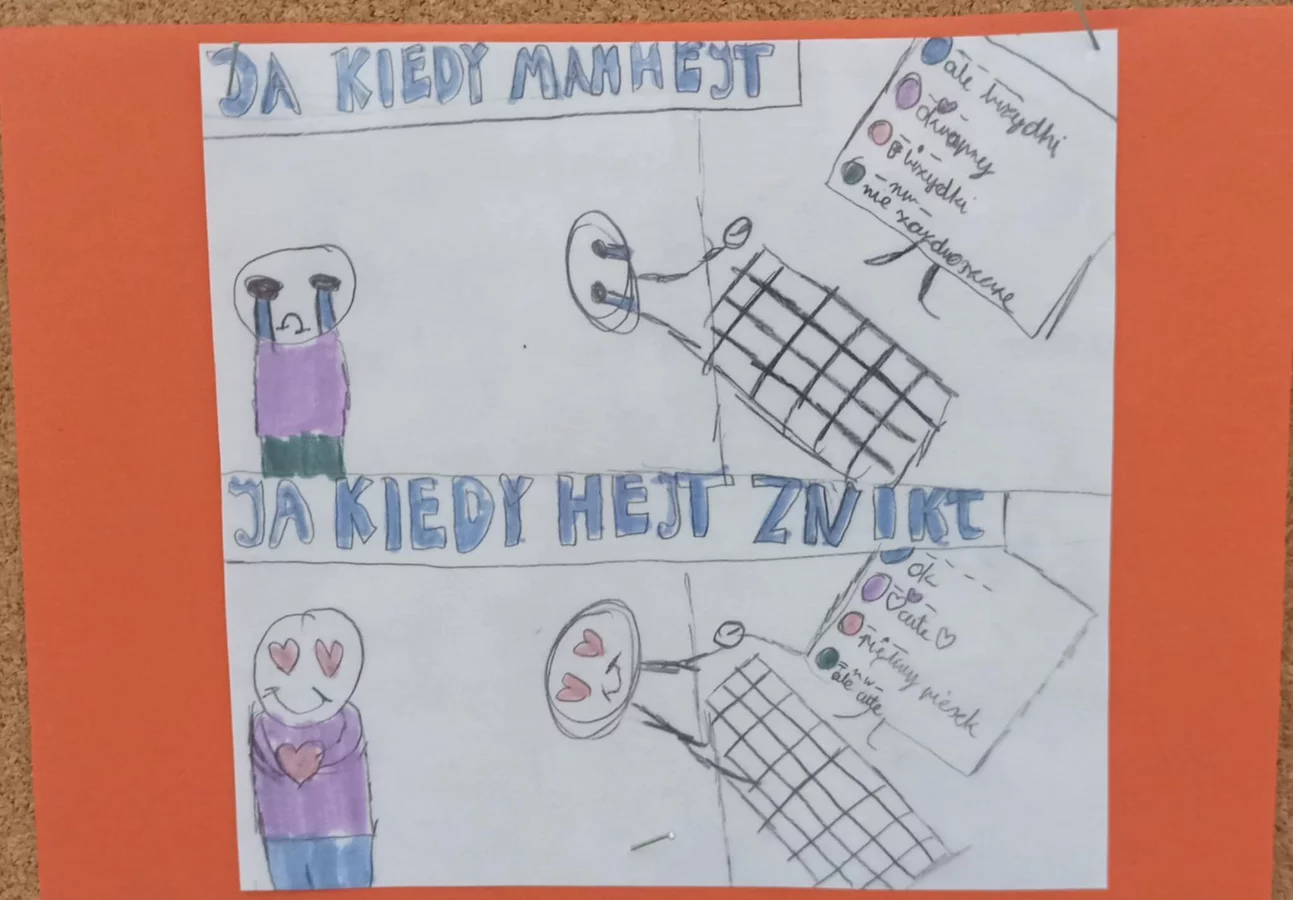 JA KIEDY MAM HEJT
ale brzydki
okropny
brzydki
- nw -
nie zazdroszcze
JA KIEDY HEJT ZNIKŁ
ok
♡ cute ♡
piękny piesek
- nw -
ale cute